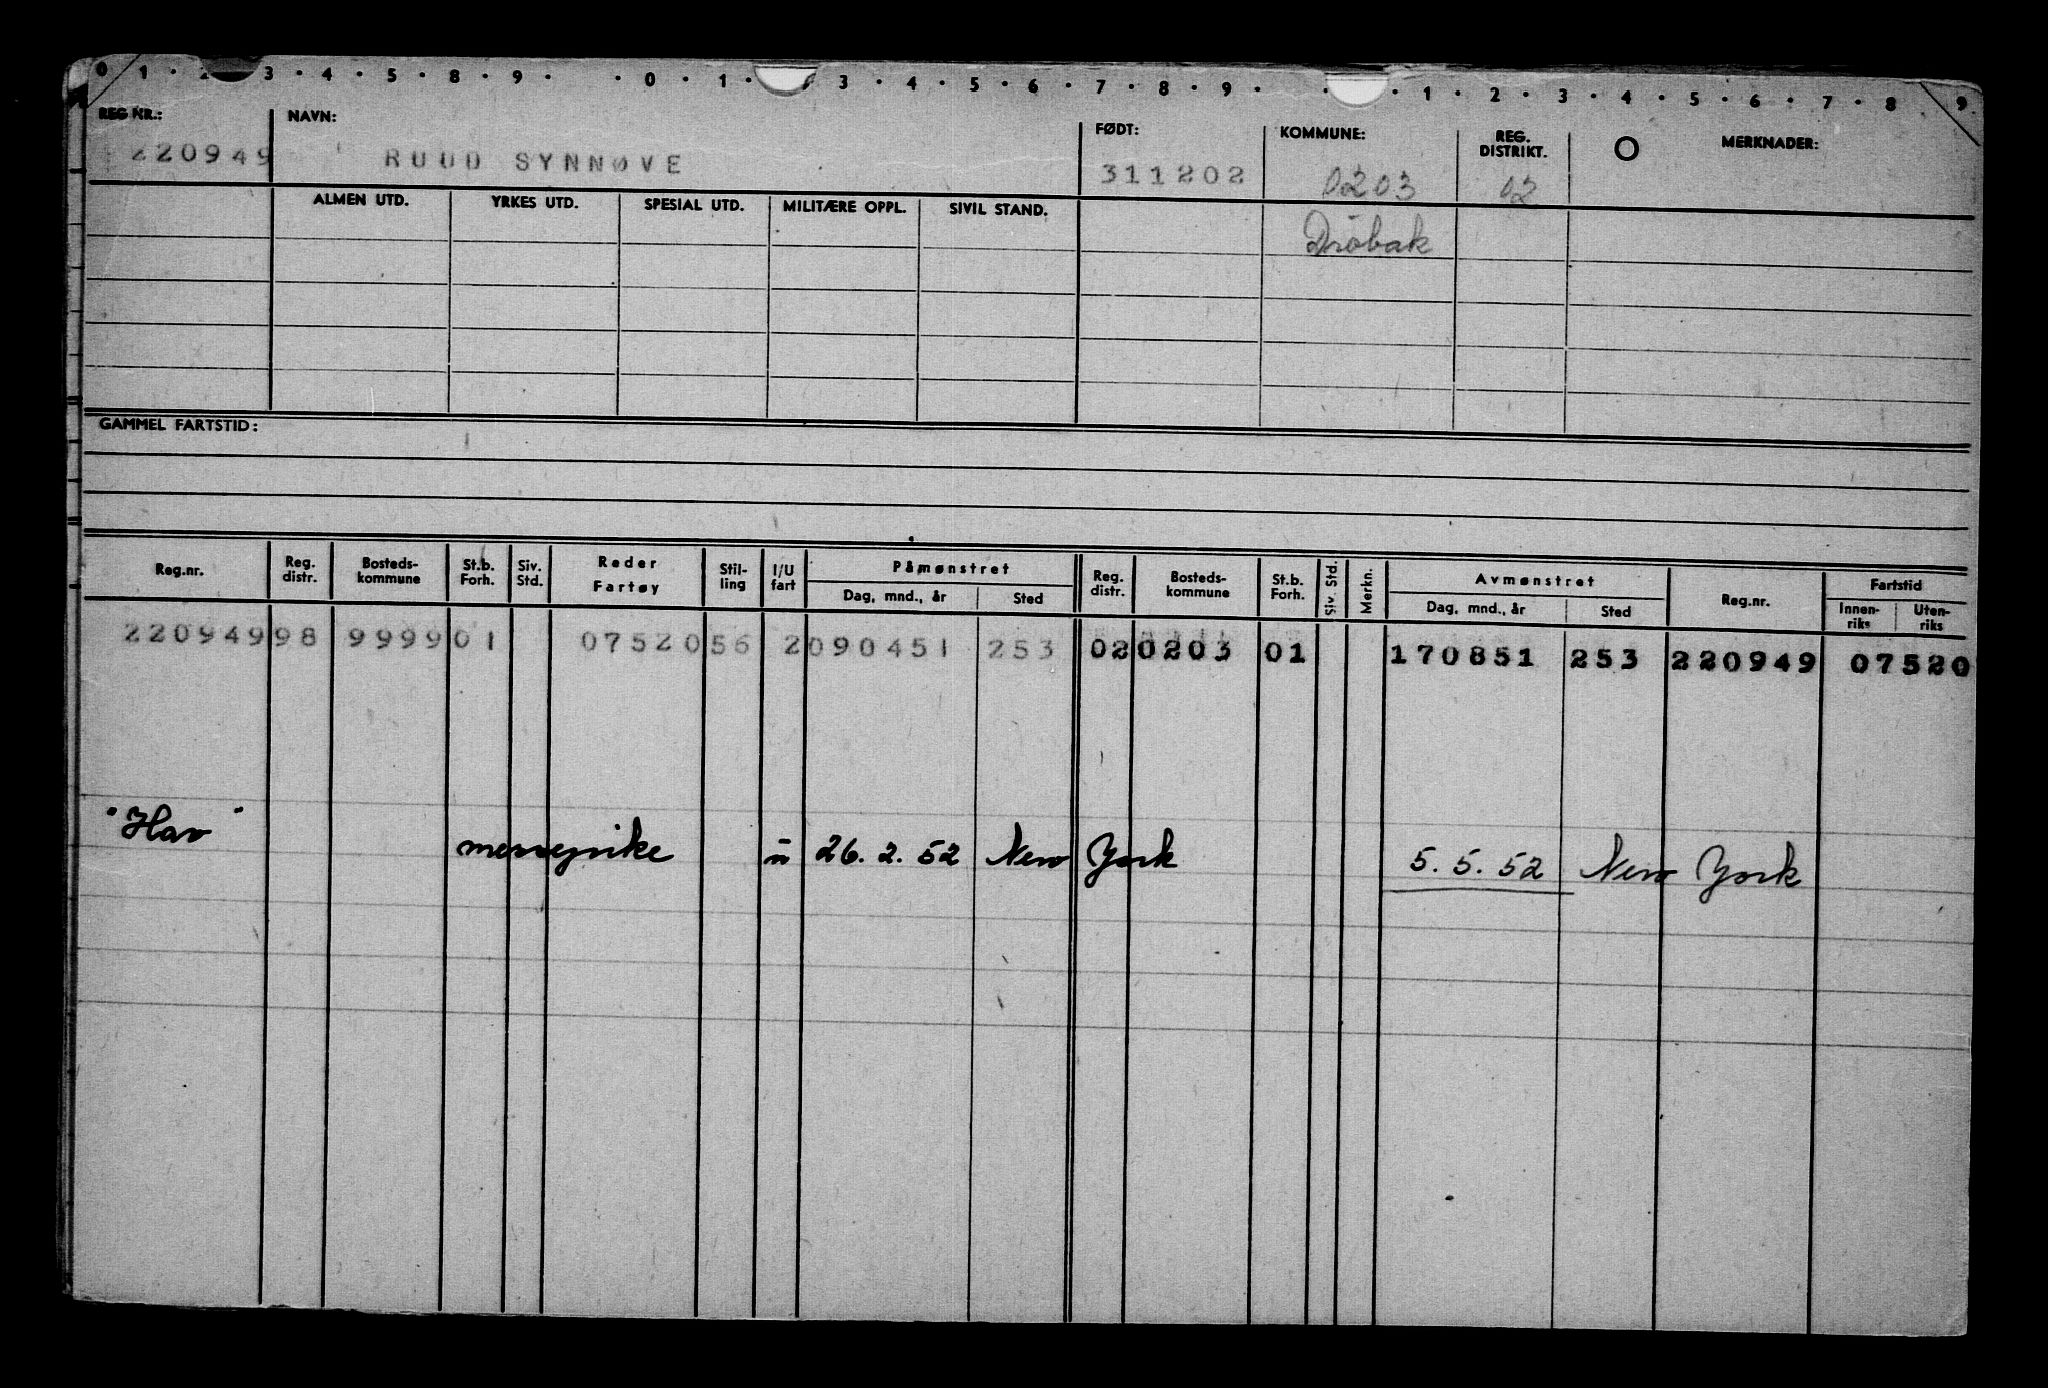 0 1 · 2 3 · 4 · 5 · 8 · 9 · · 0 · 1 · 3 · 4 · 5 · 6 · 7 · 8 · 9 · · 1 · 2 · 3 · 4 · 5 · 6 · 7 · 8 9
REG NR.: NAVN: FØDT: KOMMUNE: REG. DISTRIKT. O MERKNADER:
220949 RUUD SYNNØVE 311202 0203 02
ALMEN UTD. YRKES UTD. SPESIAL UTD. MILITÆRE OPPL. SIVIL STAND.
Dröbak
GAMMEL FARTSTID:
Reg.nr. Reg. distr. Bosteds-kommune St.b. Forh. Siv. Std. Reder Fartøy Stil-ling I/U fart Påmønstret Dag, mnd., år Sted Reg. distr. Bosteds-kommune St.b. Forh. Siv. Std. Merkn. Avmønstret Dag, mnd., år Sted Reg.nr. Fartstid Innen-riks Uten-riks
220949 98 9999 01 07520 56 2 090451 253 02 0203 01 170851 253 220949 07520
"Hav" messepike u 26. 2. 52 New York 5. 5. 52 New York